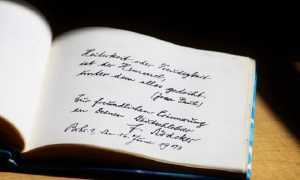 Heiterkeit oder Freudigkeit
ist der Himmel,
unter dem alles gedeiht.
(Jean Paul)
Zur freundlichen Erinnerung
an Deinen Deutschlehrer
F.
den 12. Juni 19